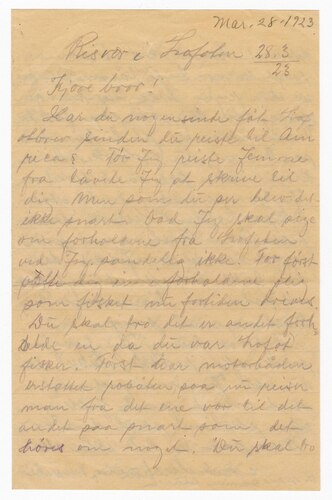 Mar. 28-1923
Risvær i Lofoten 28.3
23
Kjære bror!
Har du nogensinde fåt Lof
otbrev siden du reiste til Am
reca. Før Jeg reiste
fra lovede Jeg at skrive til
dig. Men som du ser blev det
ikke snart. Vad Jeg skal sige
om forholdene fra Lofoten
ved Jeg sandelig ikke. For først
forholdene
som fisket nu fortiden drives
Du skal tro det er andet forh
olde en da du var Lofot
fisker. Først har motorbåden
paa nu reiser
man fra det ene vær til det
andet saa snart som det
høres om noget. Du skal tro